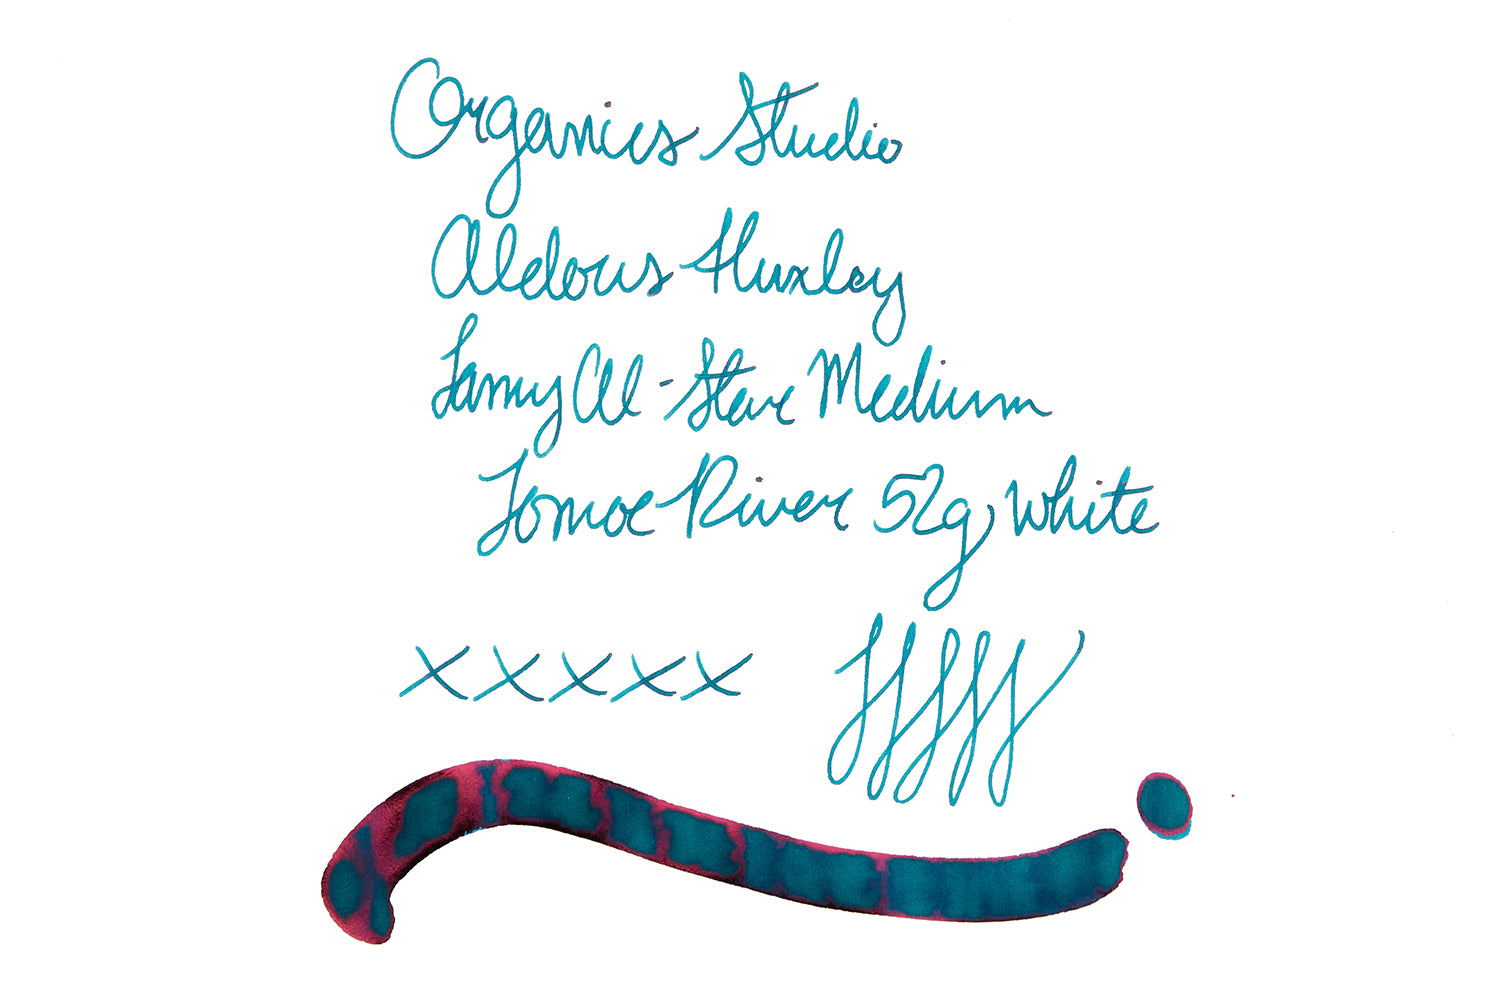 Organics Studio
Aldous Huxley
Lamy Al-Star Medium
Tomoe River 52g, White
xxxxx